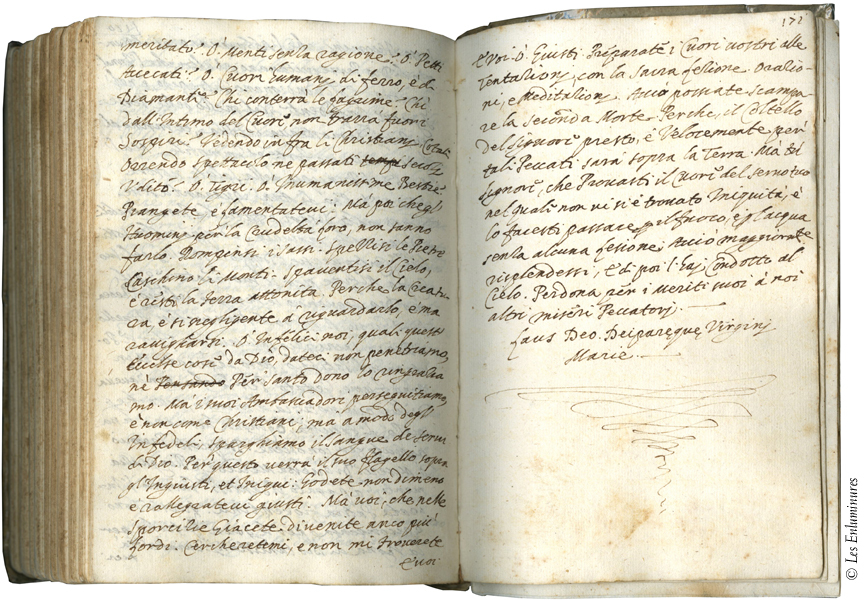 meritato? O' Menti senza ragione? O' Petti
Accecati? O' Cuori humani di ferro, è di
Diamanti? Chi conterrà le lagrime? Chi
dall'Intimo del Cuor' non trarra fuori
Sospiri? Vedendo in fra li Christiani
Orrendo spetacolo ne passati secoli
Udito? O' Tigri. O' Inhumanissime Bestie
Piangete è lamentatevi: Ma poi che gl'
Huomini per la Crudeltà loro, non sanno
farlo. Rompinsi i sassi. Spellisi le Pietre
Caschino li Monti. Spaventisi il Cielo,
è resti la Terra attonita. Perche la Creatu-
ra, è si negligente à riguardarlo, è ma
ravigliarsi. O' Infelici noi, quali questi
da Dio, dateci non penetriamo,
nè Per Santo dono lo
mo. Mà i suoi Ambasciadori perseguitiamo,
è non come Christiani; ma a modo degl'
Infedeli, sparghiamo il Sangue de servi
di Dio. Per questo verrà il suo flagello sopra
gl'Ingiusti, et Iniqui. Godete non dimeno
è rallegratevi giusti. Mà voi, che nelle
Sporcitie Giacete. divenite anco più
lordi. Cercheretemi, e non mi troverete
È voi
172
È Voi. O' Giusti. Preparate i Cuori vostri alle
Tentationi, con la Sacra Oratio-
ne, e Meditationi. Acciò possiate scampa
re la seconda Morte. Perche, il Coltello
del Signor' presto, è Velocemente per
tali Peccati sarà sopra la Terra. Mà tu
Signor', che Provasti il Cuor' del servo tuo
nel quale non vi si è trovato Iniquità, è
lo facesti passare p il fuoco, è p l'acqua
senza alcuna lesione. Acciò maggiormte
risplendessi, è di poi l'hai Condotto al
Cielo. Perdona per i Meriti suoi à noi
altri miseri Peccatori.
Laus Deo. Deiparęque Virgini
Marie.
© Les Enluminures